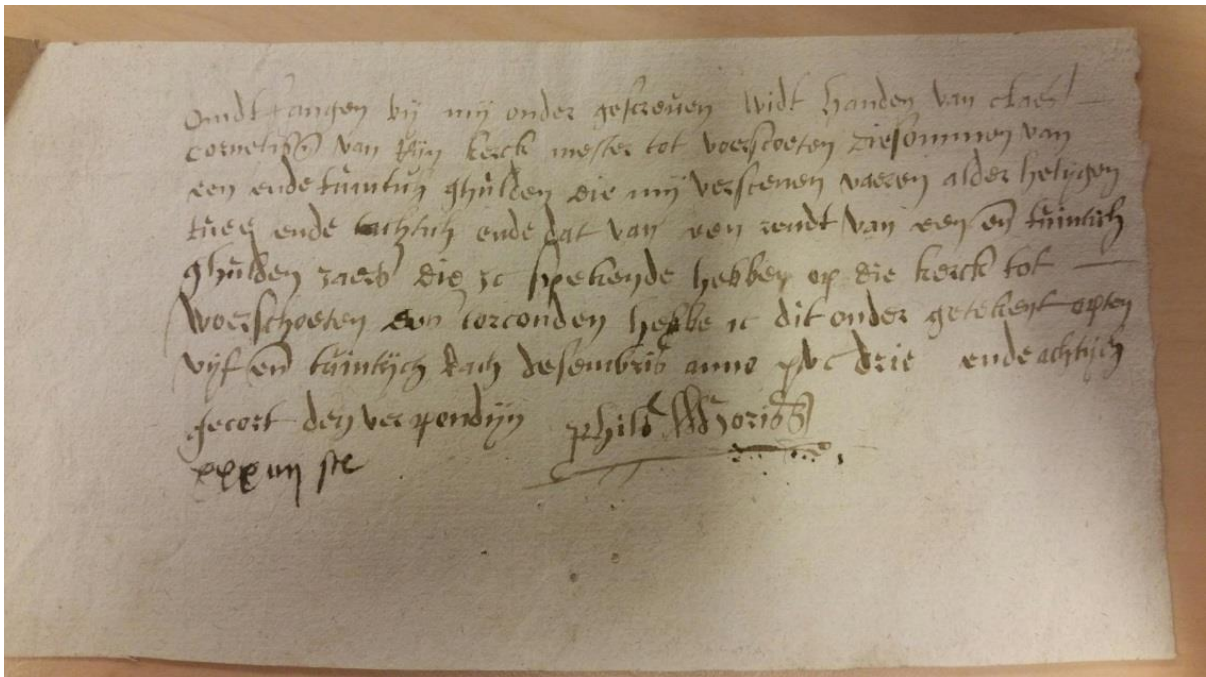 Ondtfangen bij mij onder gescreven widt handen van claes
cornelisz van Rijn kerck mester tot voerscoeten die sommen van
een ende tuintich ghulden die mij verscenen vaeren alder heligen
tuee ende tachtich ende dat van een rendt van een en tuintich
ghulden Jaers die ic sprekende hebben op die kerck tot
Woerschoeten torconden hebbe ic dit onder getekent opten
vijf en tuintich desembris anno xvc drie ende achtich
gecort den verpondijn Phils Morisz
xxxviij